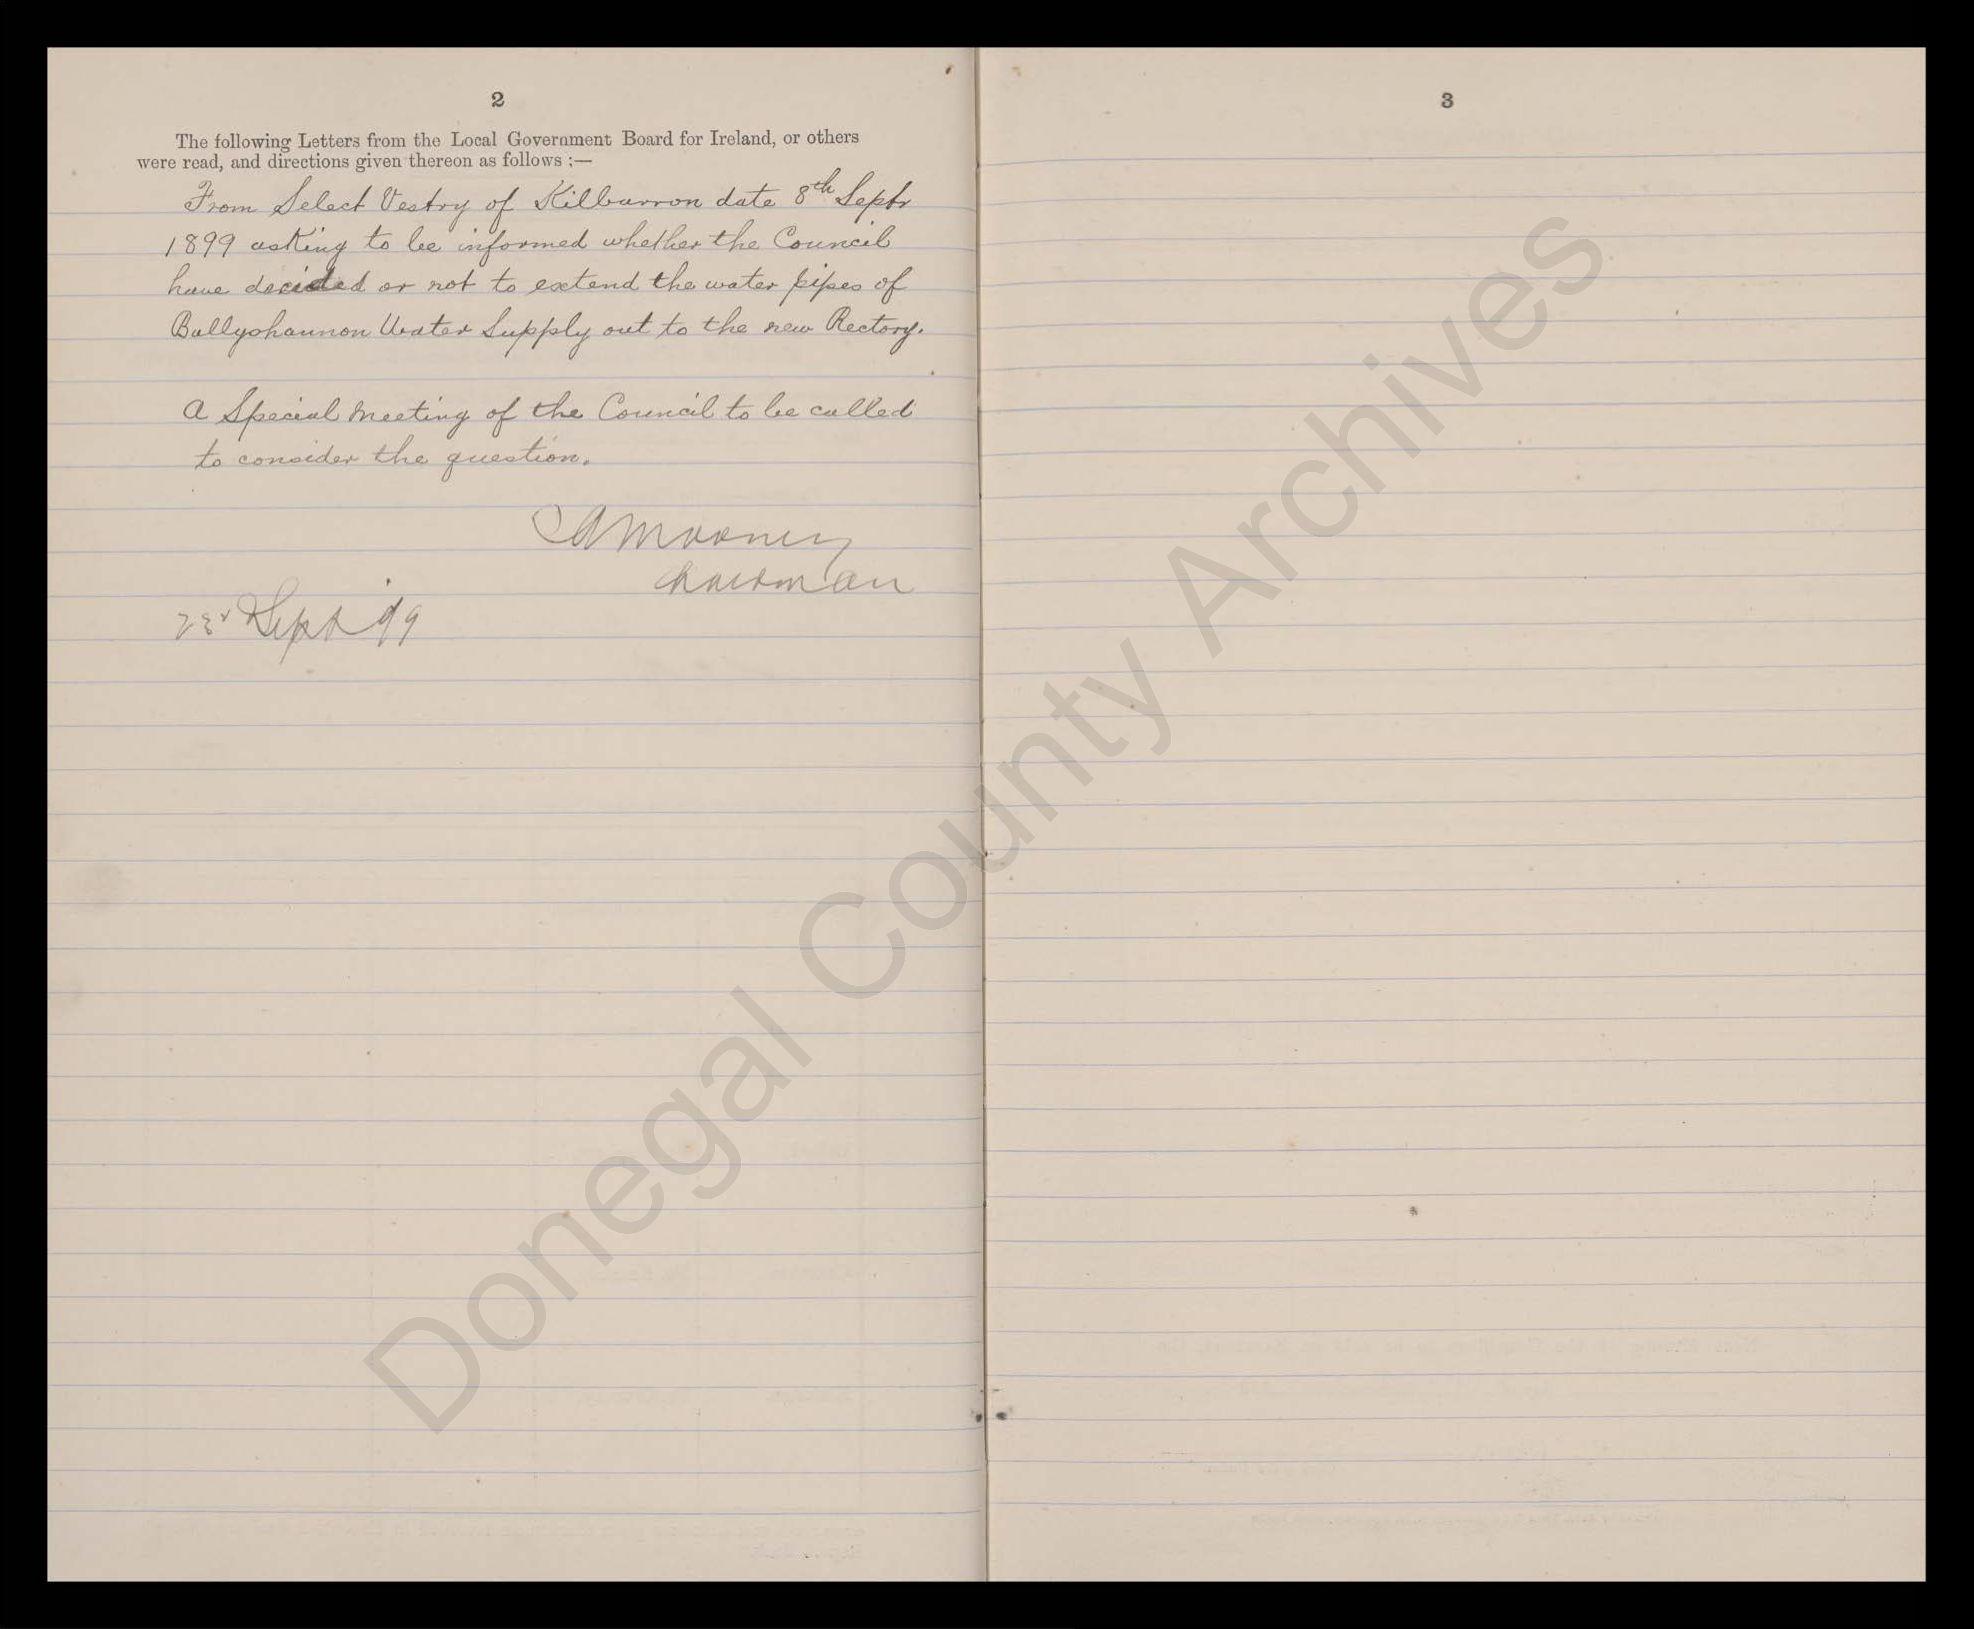 2
The following Letters from the Local Government Board for Ireland, or others
were read, and directions given thereon as follows :—
From Select Vestry of Kilbarron date 8th Septr
1899 asking to be informed whether the Council
have decided or not to extend the water pipes of
Ballyshannon Water Supply out to the new Rectory.
A Special Meeting of the Council to be called
to consider the question.
Mooney
Chairman
Sept 99
3
Donegal County Archives